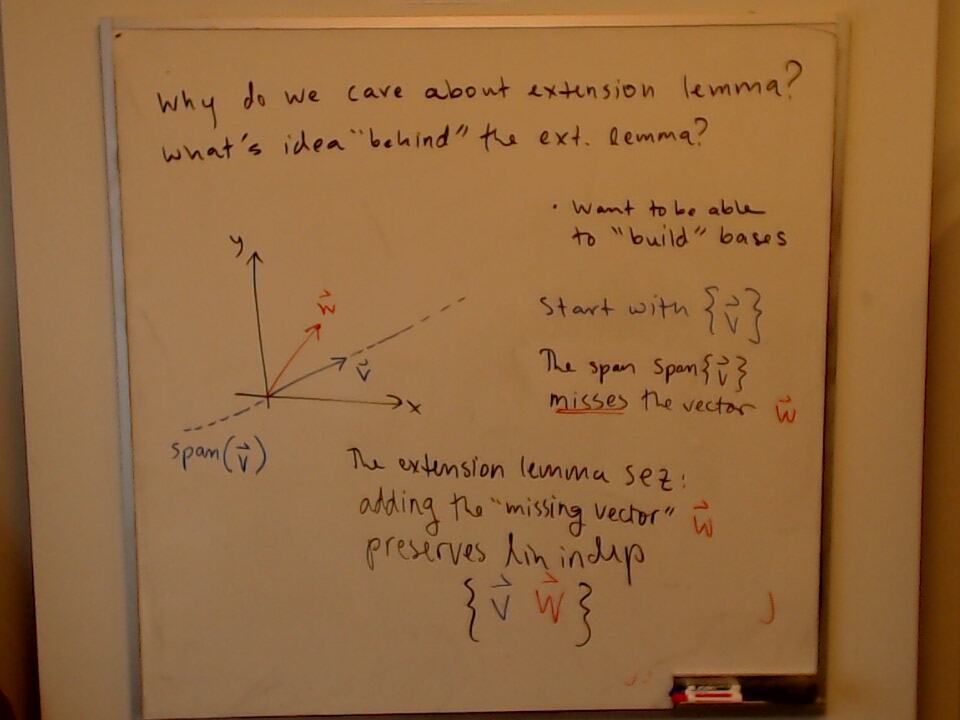 Why do we care about extension lemma?
what's idea "behind" the ext. lemma?
• Want to be able
to "build" bases
y
w⃗
v⃗
x
span(v⃗)
Start with {v⃗}
The span span{v⃗}
misses the vector w⃗
The extension lemma sez:
adding the "missing vector" w⃗
preserves lin indep
{v⃗ w⃗}